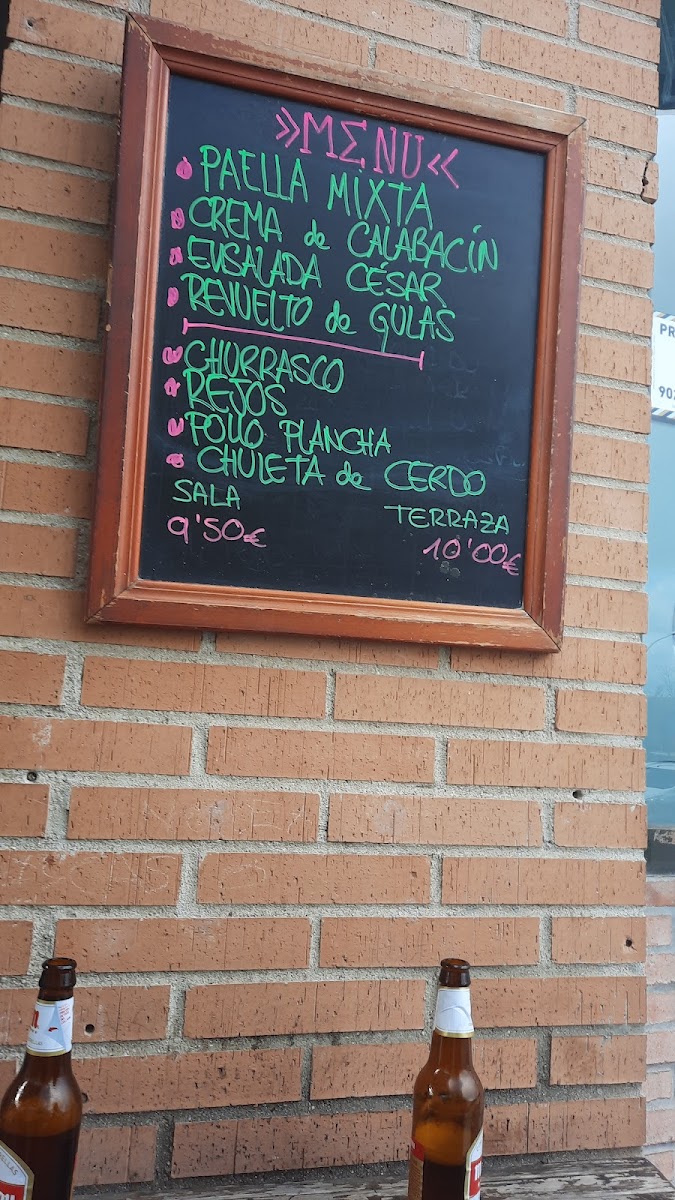 »MENU«
PAELLA MIXTA
CREMA de CALABACÍN
ENSALADA CÉSAR
REVUELTO de GULAS
CHURRASCO
REJOS
POLLO PLANCHA
CHULETA de CERDO
SALA
TERRAZA
9'50€
10'00€
PR
902